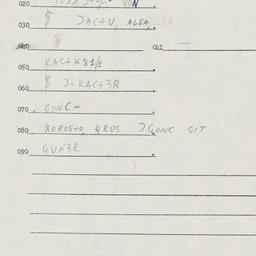 020 VON
030 $ ƆACTU, ALSA,
040 041 —
050 KACTK81/2
060 $ Ɔ-KACT3R
070 GONC-
080 XOROSTO, QRUS ƆGONC GIT
090 GUN3R